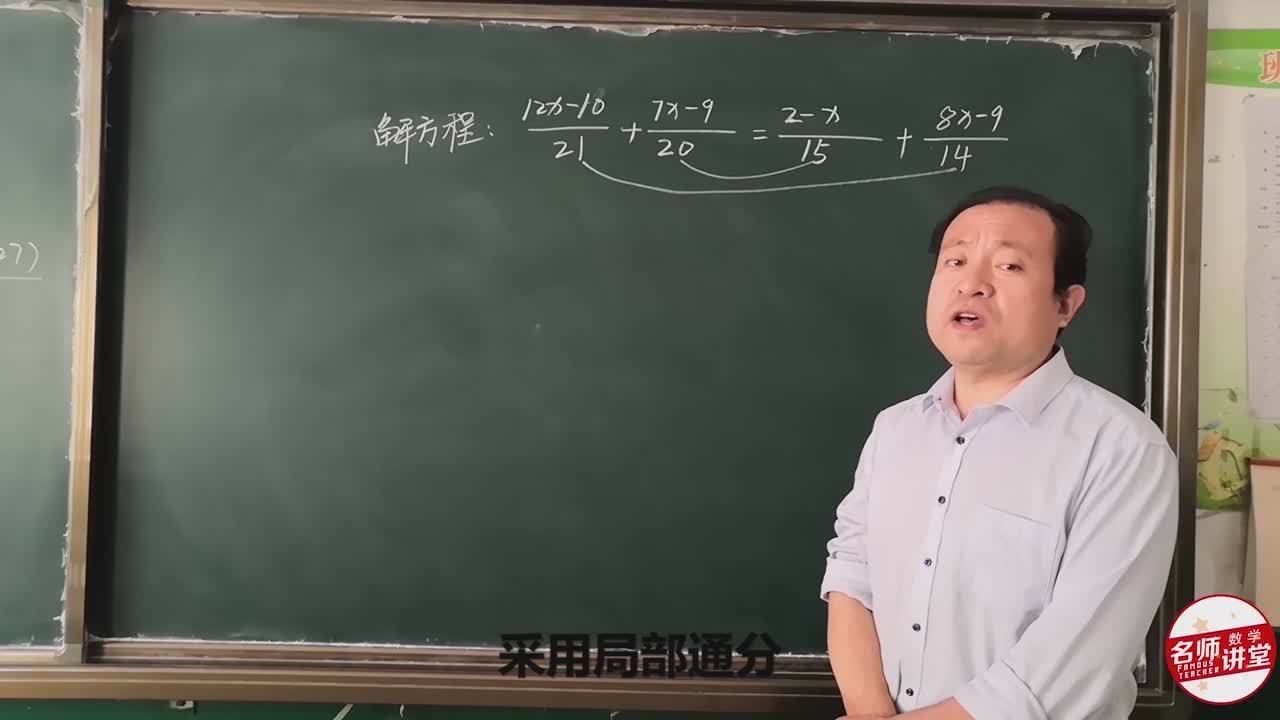 解方程: (12x-10)/21 + (7x-9)/20 = (2-x)/15 + (8x-9)/14
27)
采用局部通分
名师
数学
讲堂
FAMOUS
TEACHER